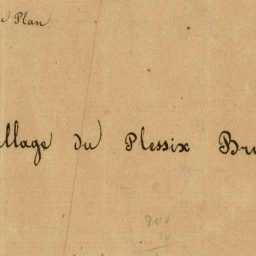 e Plan
llage du Plessix Bru